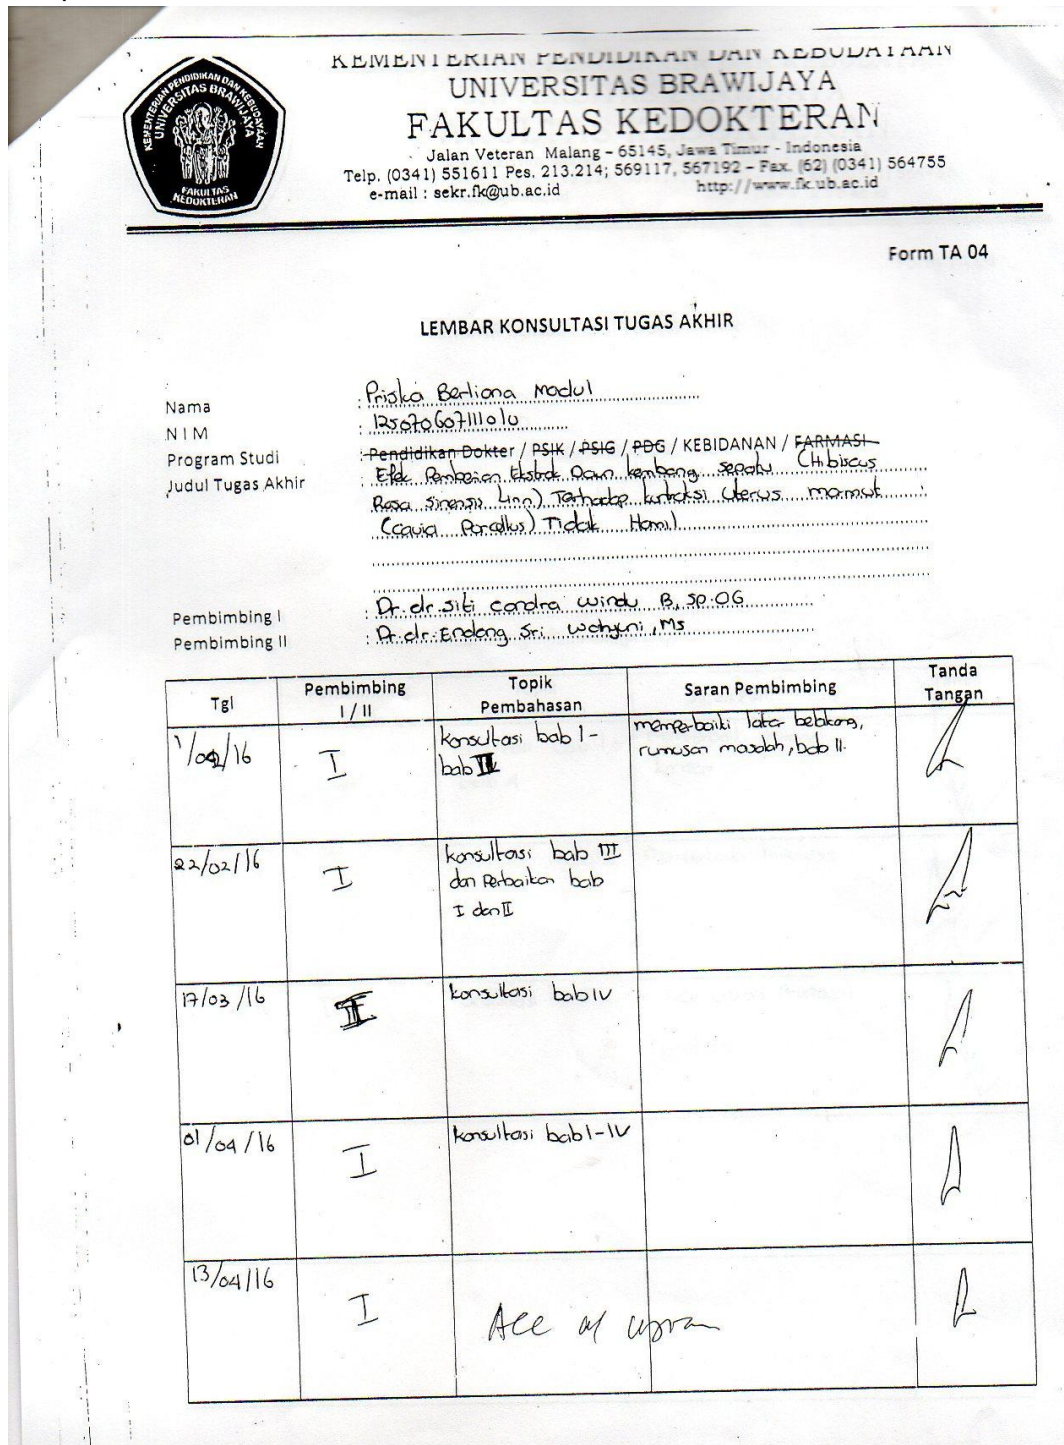 KEMENTERIAN PENDIDIKAN DAN KEBUDAYAAN
UNIVERSITAS BRAWIJAYA
FAKULTAS KEDOKTERAN
Jalan Veteran Malang – 65145, Jawa Timur - Indonesia
Telp. (0341) 551611 Pes. 213.214; 569117, 567192 – Fax. (62) (0341) 564755
e-mail : sekr.fk@ub.ac.id http://www.fk.ub.ac.id
KEMENTERIAN PENDIDIKAN DAN KEBUDAYAAN
UNIVERSITAS BRAWIJAYA
FAKULTAS
KEDOKTERAN
Form TA 04
LEMBAR KONSULTASI TUGAS AKHIR
Nama : Priska Berliana Modul
NIM :
Program Studi : Pendidikan Dokter / PSIK / PSIG / PDG / KEBIDANAN / FARMASI
Judul Tugas Akhir : Efek Pemberian Ekstrak Daun kembang sepatu (Hibiscus
Rosa Sinensis Linn) Terhadap kontraksi Uterus marmut
(cavia Porcellus) Tidak Hamil
Pembimbing I : Dr. dr. Siti Candra Windu B, SP.OG
Pembimbing II : Dr. dr. Endang Sri Wahyuni, Ms
Tgl Pembimbing I / II Topik Pembahasan Saran Pembimbing Tanda Tangan
1/02/16 I konsultasi bab I - memperbaiki latar belakang,
bab II rumusan masalah, bab II.
22/02/16 I konsultasi bab III
dan Perbaikan bab
I dan II
17/03/16 II konsultasi bab IV
01/04/16 I konsultasi bab I-IV
13/04/16 I Acc